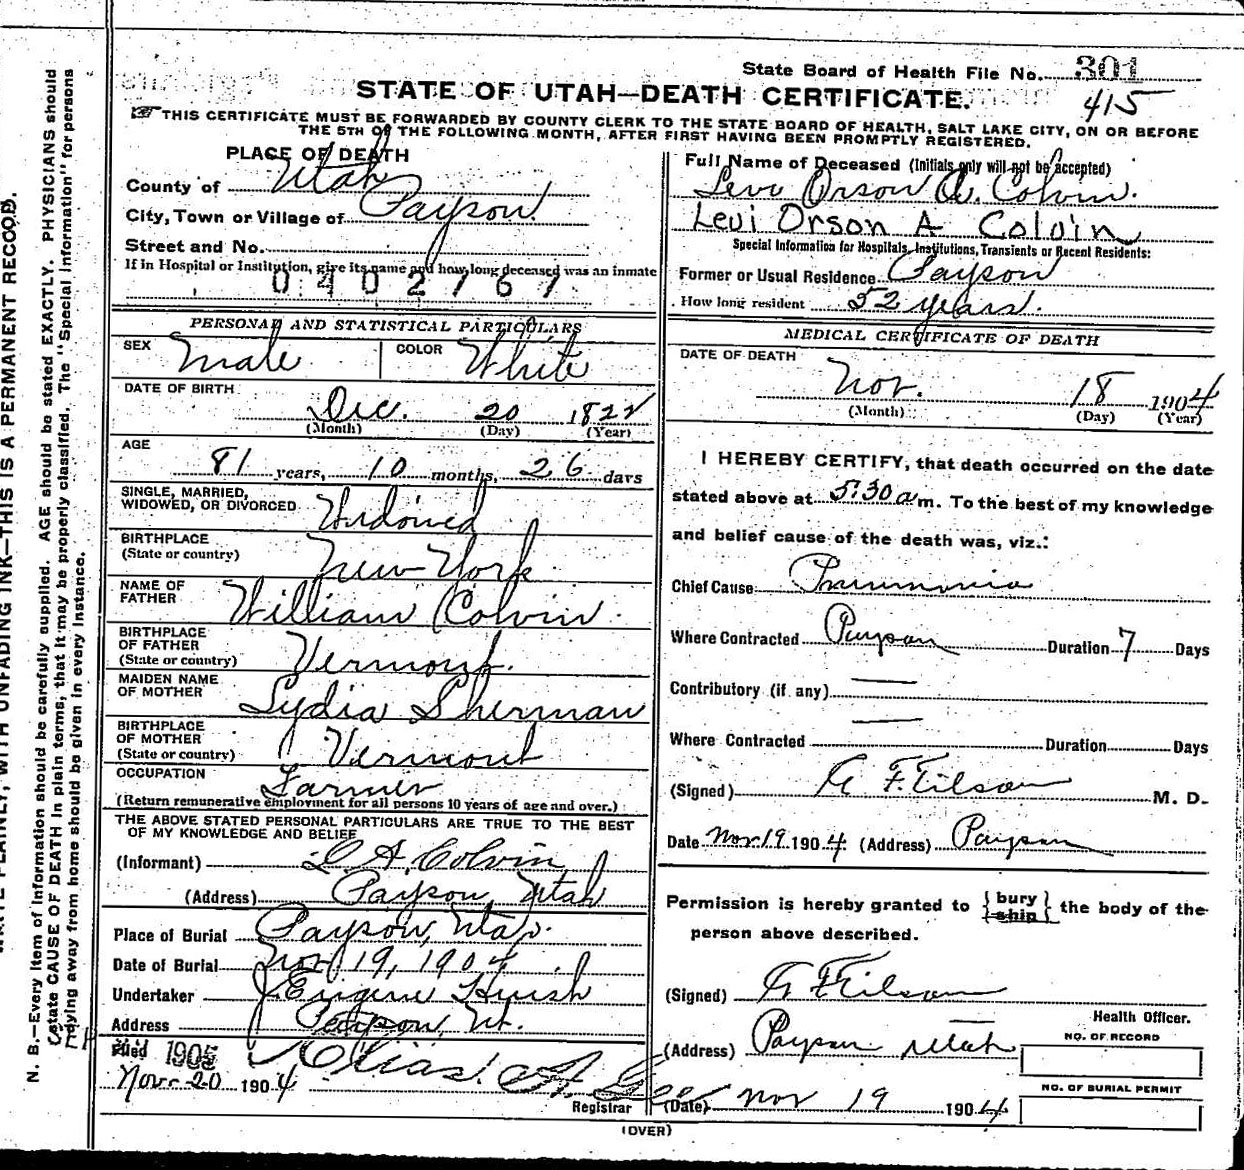 State Board of Health File No. 301
415
STATE OF UTAH—DEATH CERTIFICATE.
THIS CERTIFICATE MUST BE FORWARDED BY COUNTY CLERK TO THE STATE BOARD OF HEALTH, SALT LAKE CITY, ON OR BEFORE
THE 5TH OF THE FOLLOWING MONTH, AFTER FIRST HAVING BEEN PROMPTLY REGISTERED.
PLACE OF DEATH
County of Utah
City, Town or Village of Payson
Street and No.
If in Hospital or Institution, give its name and how long deceased was an inmate
0402767
PERSONAL AND STATISTICAL PARTICULARS
SEX Male COLOR White
DATE OF BIRTH
Dec. 20 1822
(Month) (Day) (Year)
AGE
81 years, 10 months, 26 days
SINGLE, MARRIED,
WIDOWED, OR DIVORCED Widowed
BIRTHPLACE
(State or country) New York
NAME OF
FATHER William Colvin
BIRTHPLACE
OF FATHER
(State or country) Vermont.
MAIDEN NAME
OF MOTHER Lydia Sherman
BIRTHPLACE
OF MOTHER
(State or country) Vermont
OCCUPATION Farmer
(Return remunerative employment for all persons 10 years of age and over.)
THE ABOVE STATED PERSONAL PARTICULARS ARE TRUE TO THE BEST
OF MY KNOWLEDGE AND BELIEF
(Informant) L. A. Colvin
(Address) Payson, Utah
Place of Burial Payson, Utah.
Date of Burial Nov. 19, 1904
Undertaker J. Eugene Huish
Address Payson, Ut.
Filed 1905
Nov. 20 1904
Registrar
Full Name of Deceased (Initials only will not be accepted)
Levi Orson A. Colvin.
Levi Orson A Colvin
Special Information for Hospitals, Institutions, Transients or Recent Residents:
Former or Usual Residence Payson
How long resident 52 years.
MEDICAL CERTIFICATE OF DEATH
DATE OF DEATH
Nov. 18 1904
(Month) (Day) (Year)
I HEREBY CERTIFY, that death occurred on the date
stated above at 5:30 a m. To the best of my knowledge
and belief cause of the death was, viz.:
Chief Cause Pneumonia
Where Contracted Payson Duration 7 Days
Contributory (if any) —
Where Contracted — Duration Days
(Signed) A F. Tilson M. D.
Date Nov 19 1904 (Address) Payson
Permission is hereby granted to {bury / ship} the body of the
person above described.
(Signed) A F Tilson
Health Officer.
(Address) Payson Utah
NO. OF RECORD
NO. OF BURIAL PERMIT
(Date) Nov 19 1904
(OVER)
N. B.—Every item of information should be carefully supplied. AGE should be stated EXACTLY. PHYSICIANS should
state CAUSE OF DEATH in plain terms, that it may be properly classified. The "Special Information" for persons
dying away from home should be given in every instance.
WRITE PLAINLY, WITH UNFADING INK—THIS IS A PERMANENT RECORD.